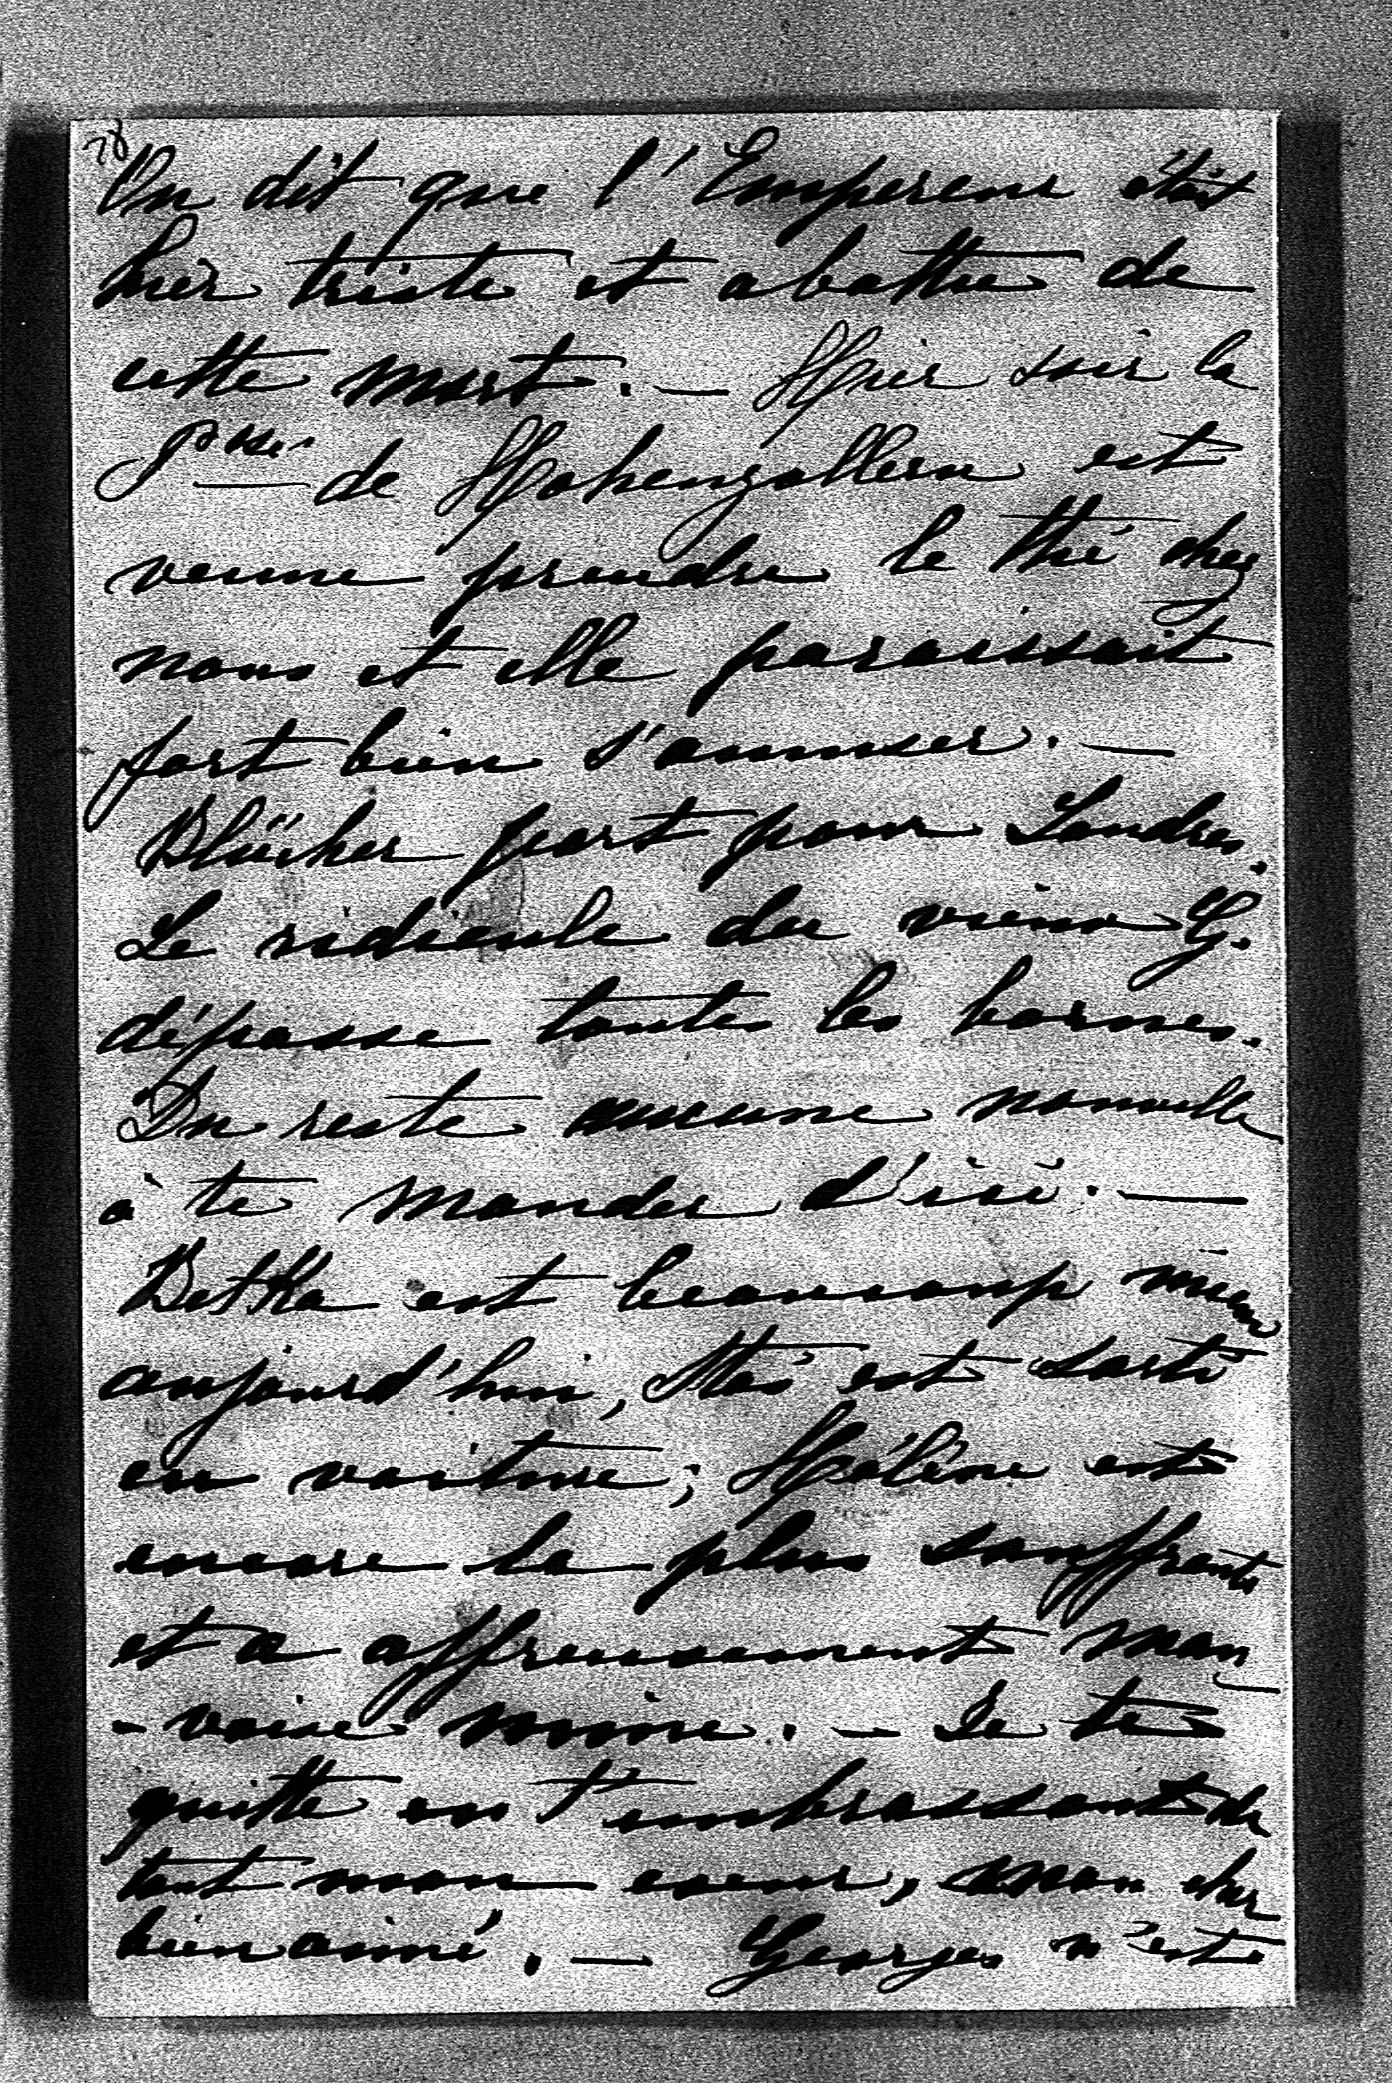 28
On dit que l'Empereur était
hier triste et abattu de
cette mort. — Hier soir la
Psse de Hohenzollern est
venue prendre le thé chez
nous et elle paraissait
fort bien s'amuser. —
Blücher part pour Londres.
Le ridicule du vieux G.
dépasse toutes les bornes.
Du reste aucune nouvelle
à te mander d'ici. —
Betka est beaucoup mieux
aujourd'hui, est sorti
en voiture; Hélène est
encore la plus souffrante
et a affreusement mau
-vaise mine. — Je te
quitte en t'embrassant de
tout mon coeur, mon cher
bien aimé. — Georges n'est